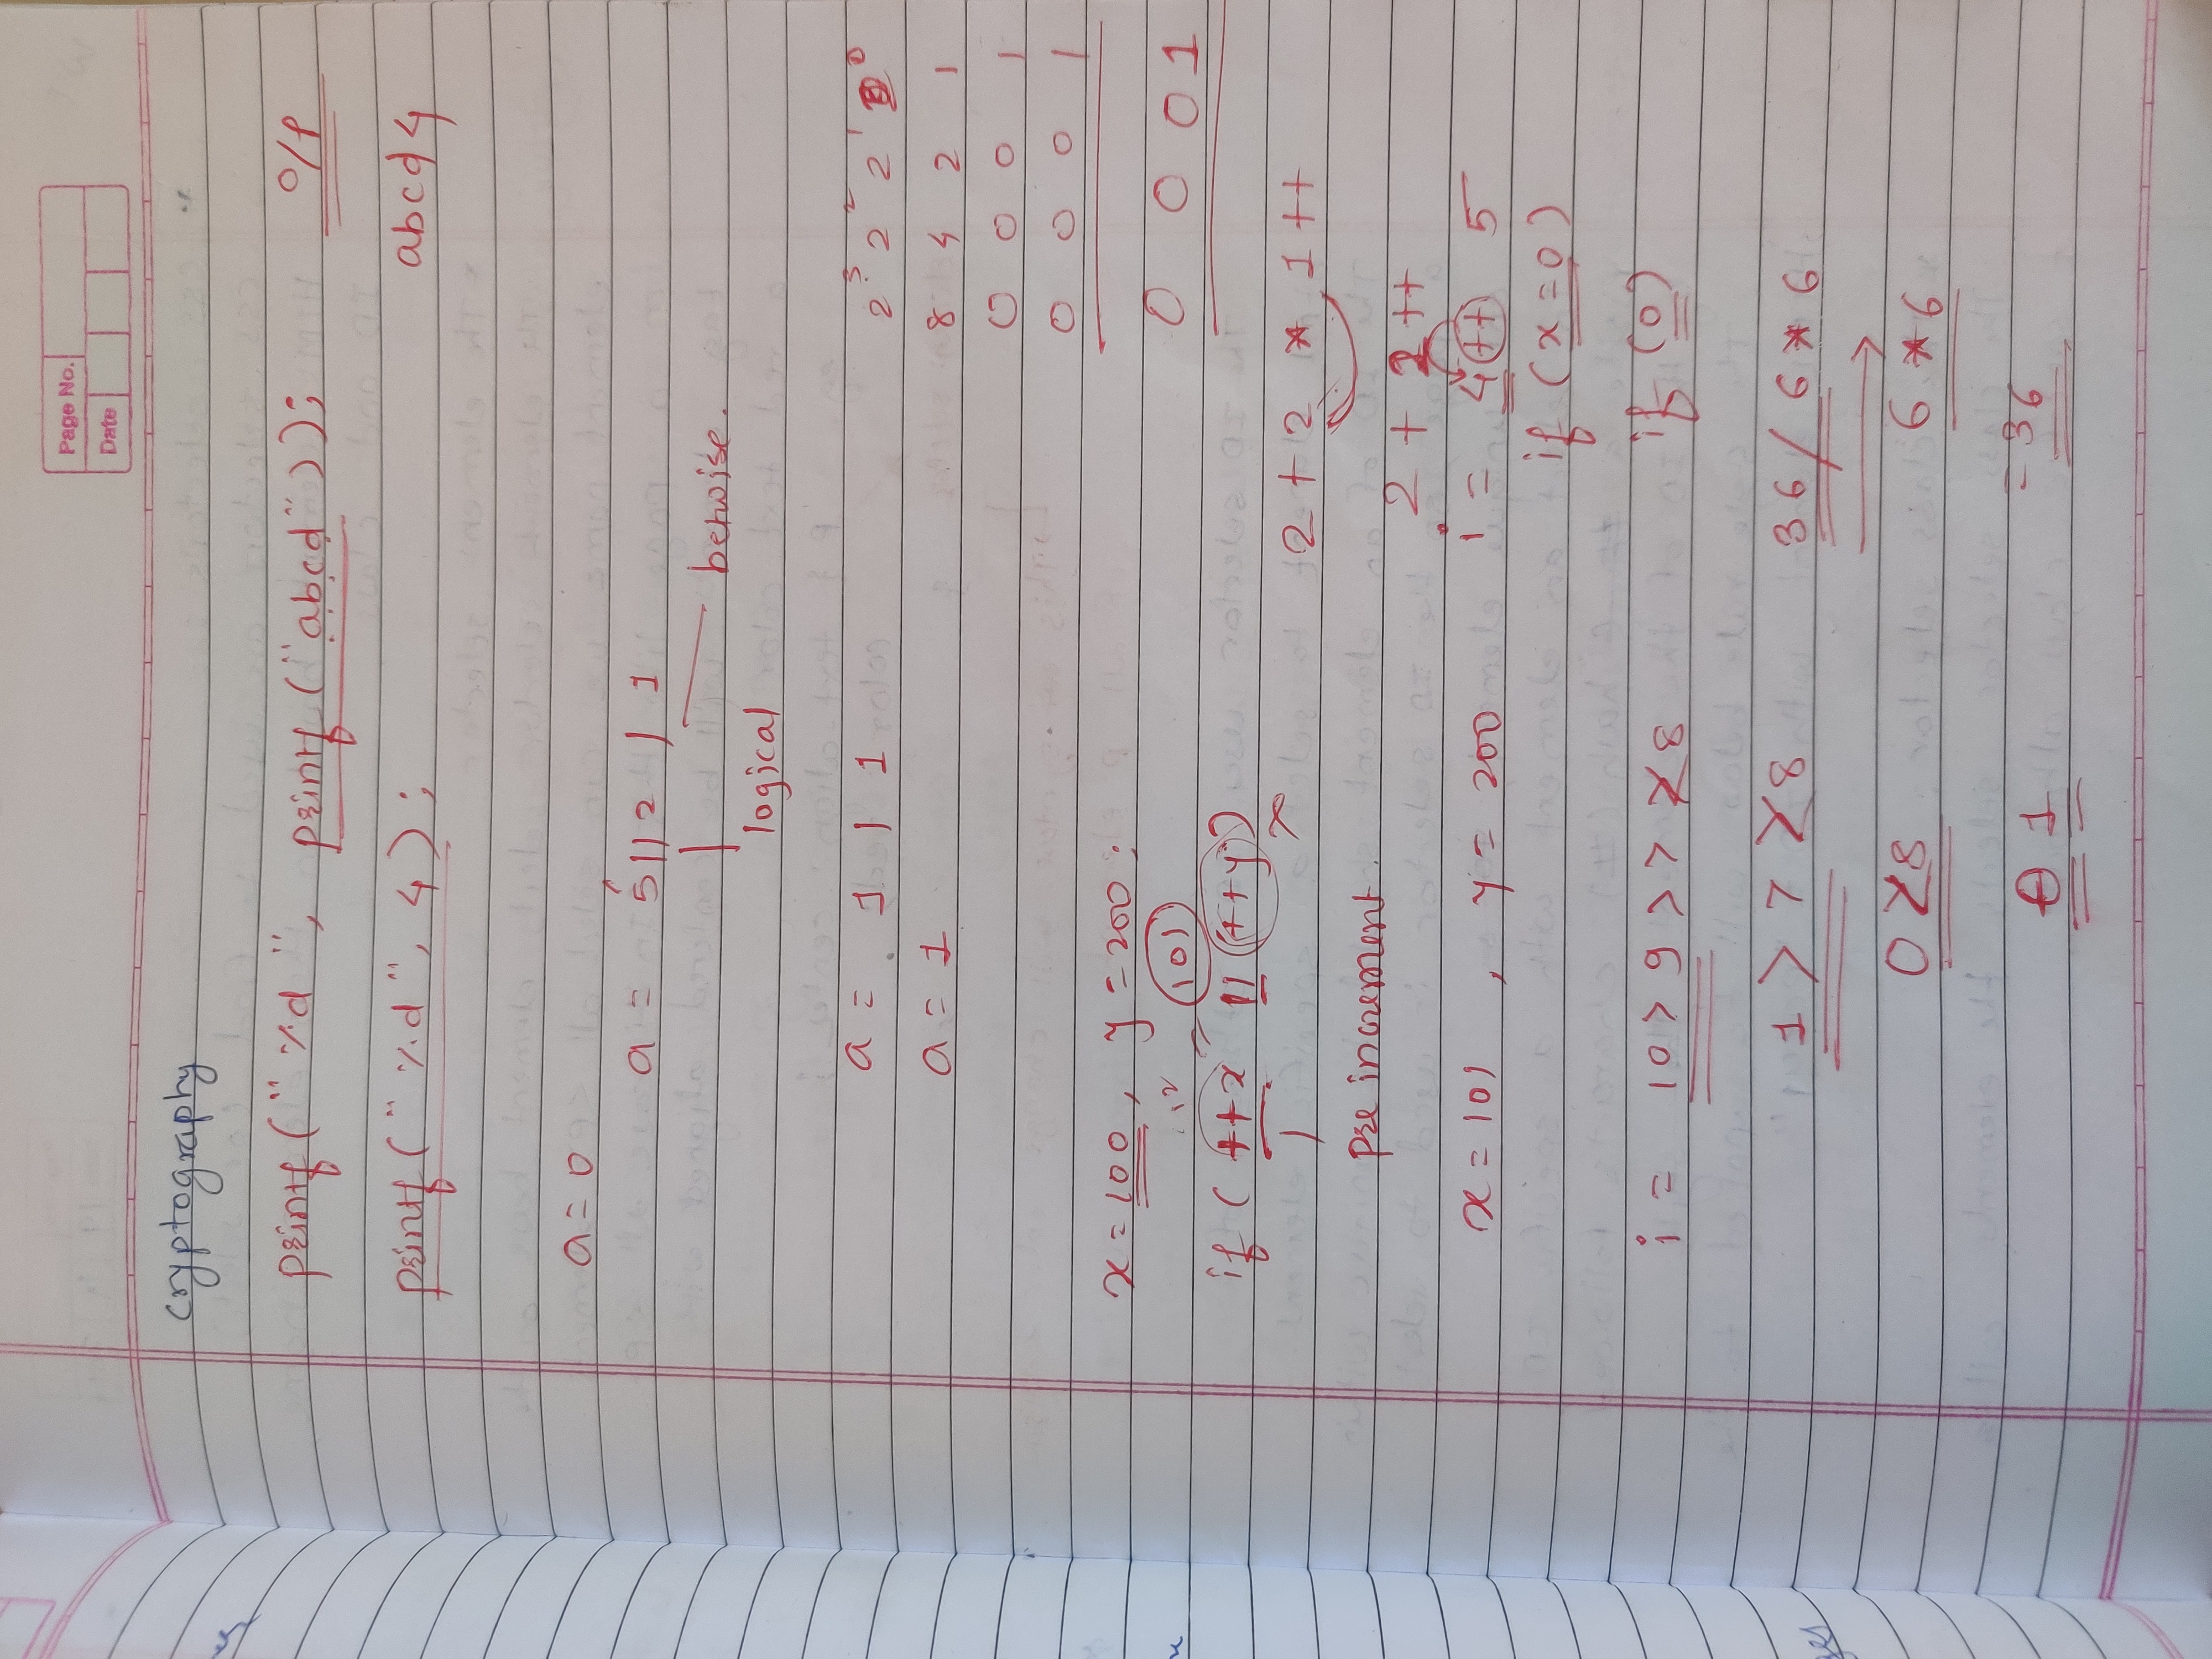 Page No.
Date
cryptography
printf("%d", printf("abcd")); o/p
printf("%d", 4); abcd4
a=0
a = 5 || 2 | 1
betwise.
logical
a = 1 | 1 2³ 2² 2¹ 2⁰
a = 1 8 4 2 1
0 0 0 1
0 0 0 1
x=100, y=200.
101 0 0 0 1
if (++x || (++y))
2+2*1++
pre increment
2+2++
x=101, y=200 i = 4++ 5
if (x=0)
i = 10>9>7>8 if (0)
1>7>8 36/6*6
0>8 6*6
1 =36